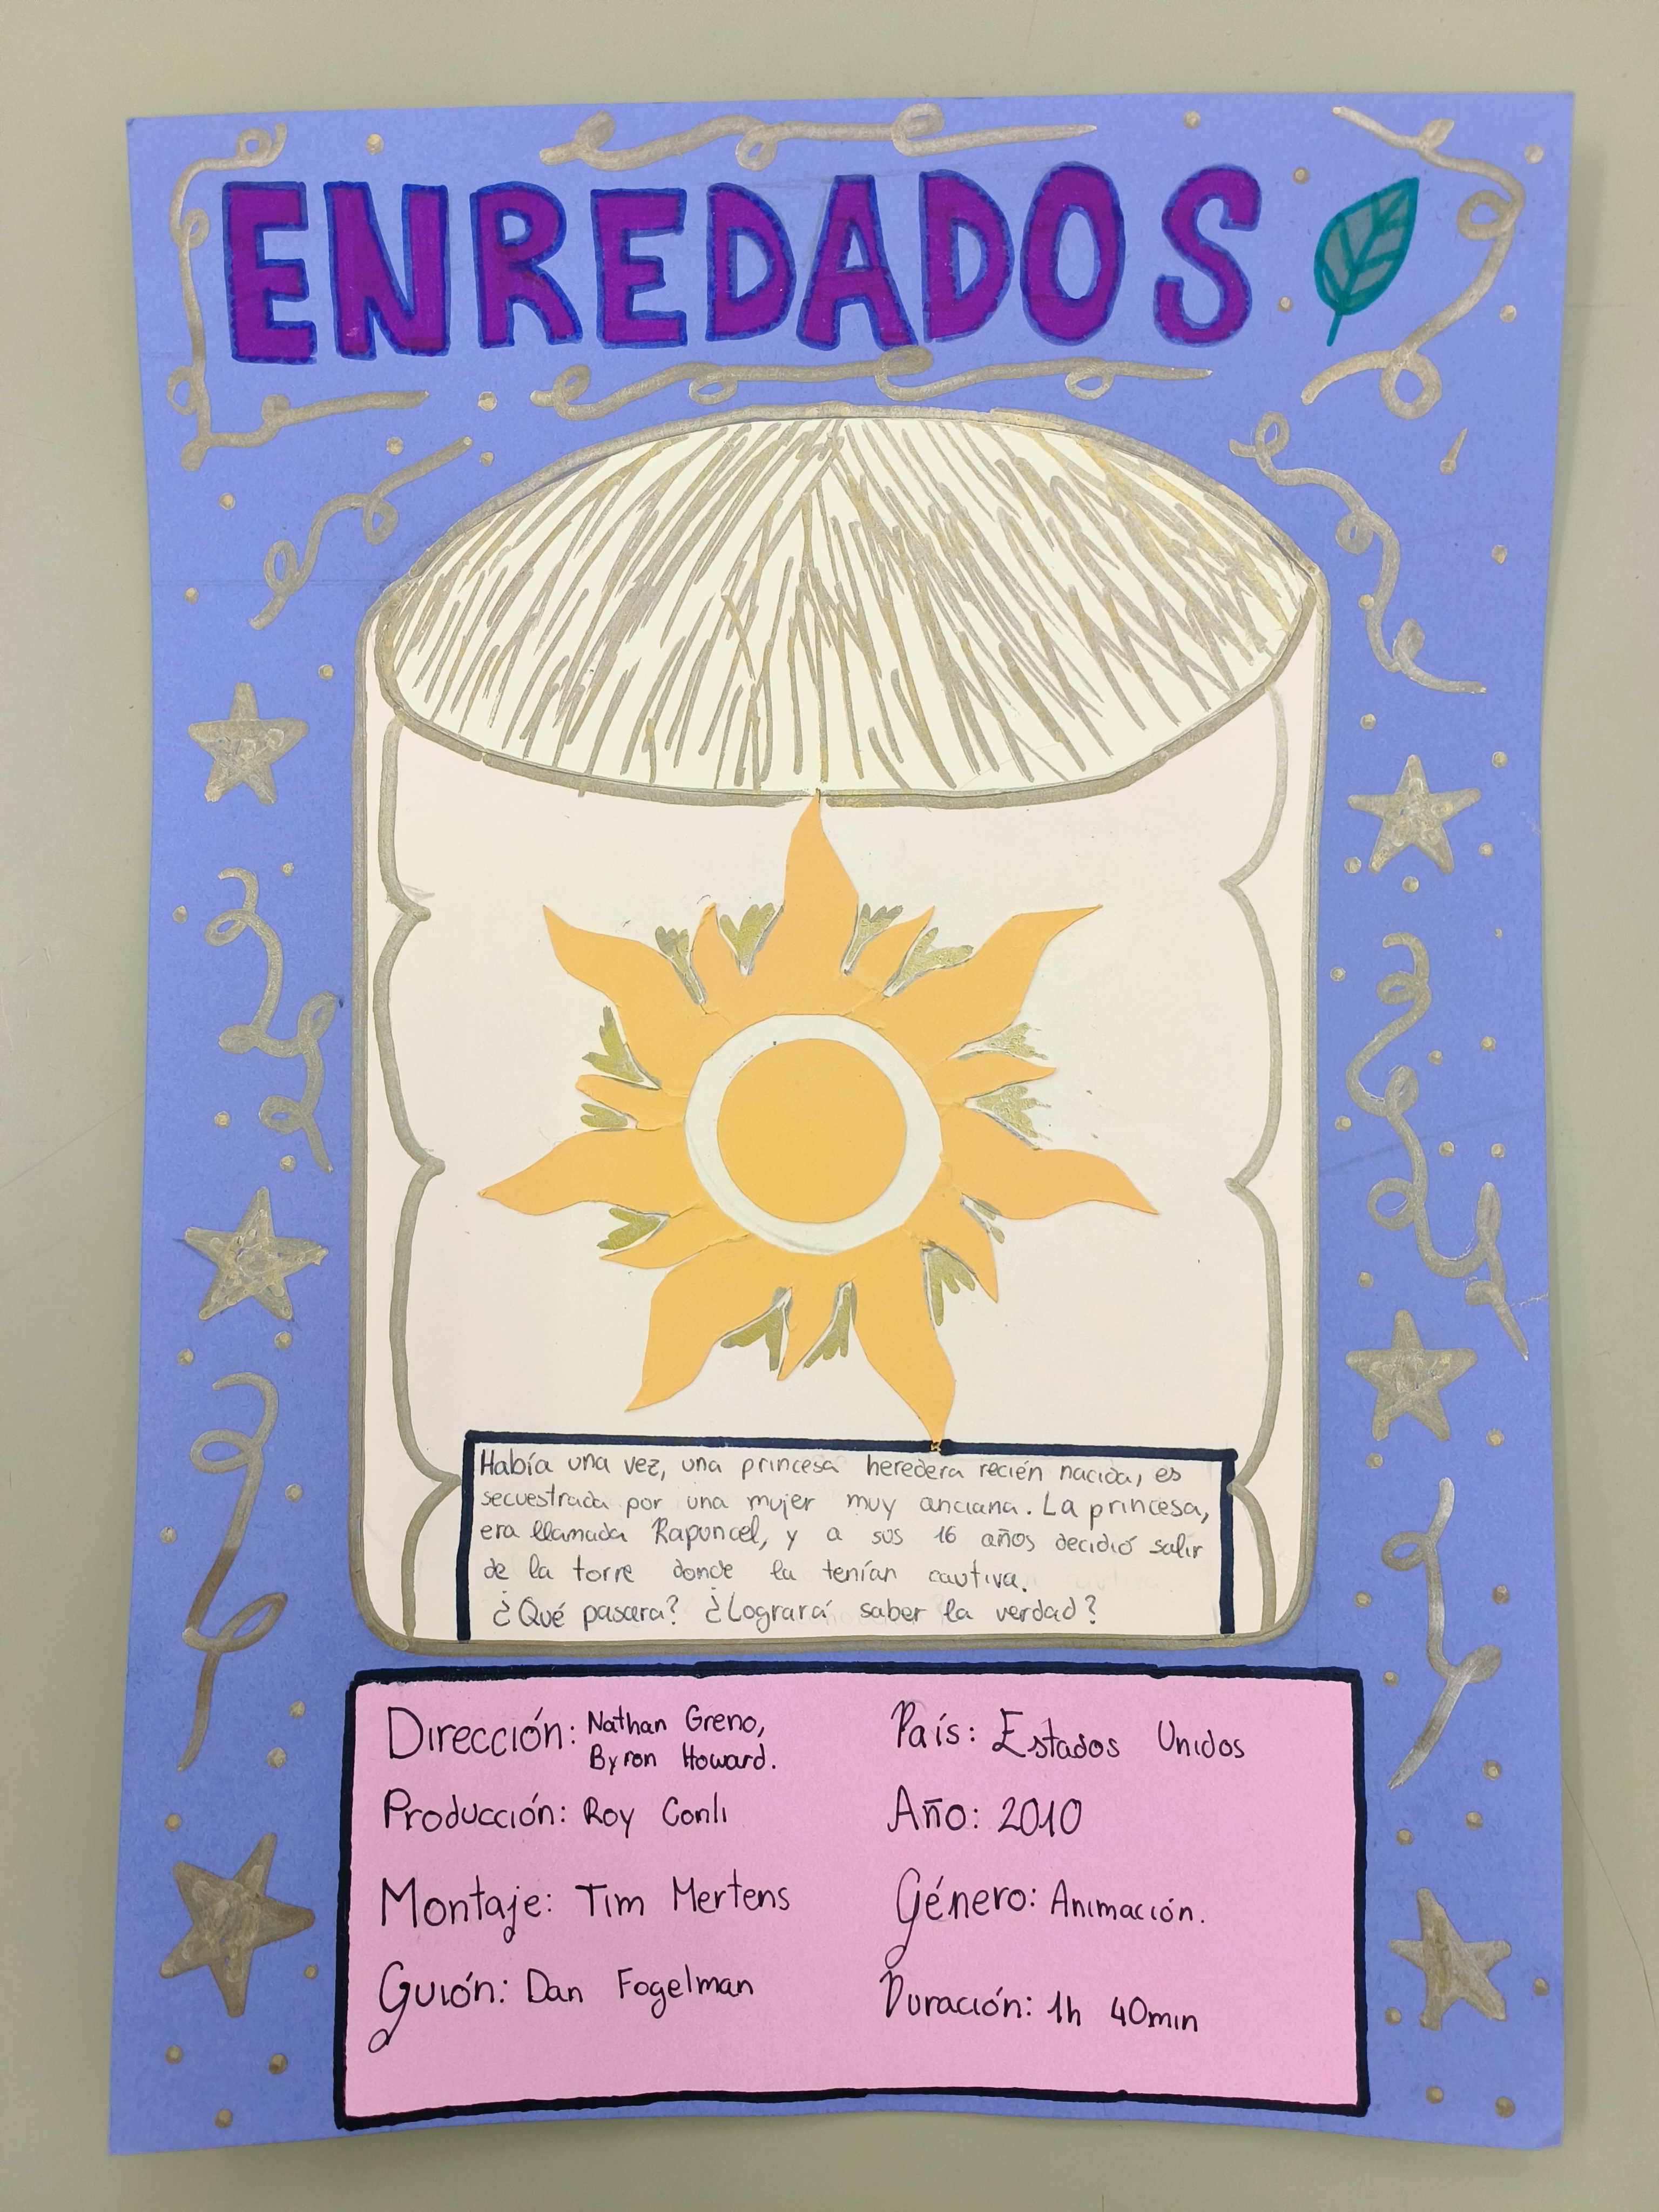 ENREDADOS
Había una vez, una princesa heredera recién nacida, es
secuestrada por una mujer muy anciana. La princesa,
era llamada Rapuncel, y a sus 16 años decidió salir
de la torre donde la tenían cautiva.
¿Qué pasara? ¿Logrará saber la verdad?
Dirección: Nathan Greno,
Byron Howard.
Producción: Roy Conli
Montaje: Tim Mertens
Guión: Dan Fogelman
País: Estados Unidos
Año: 2010
Género: Animación.
Duración: 1h 40min